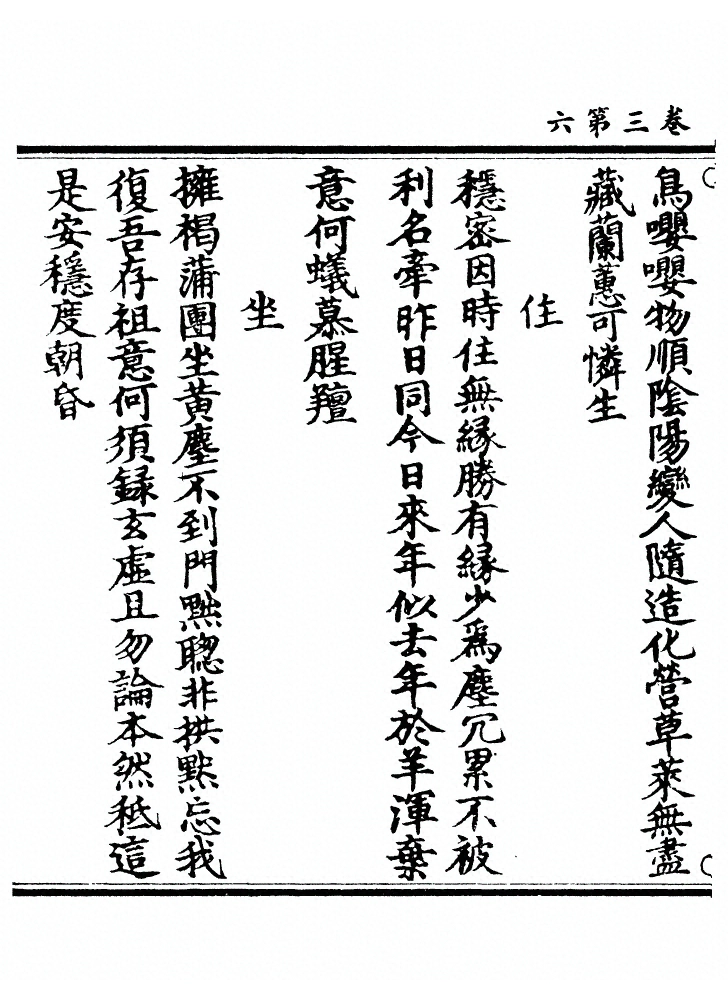 卷三第六
鳥嚶嚶物順陰陽變人隨造化營草萊無盡
藏蘭蕙可憐生
住
穩密因時住無緣勝有緣少爲塵冗累不被
利名牽昨日同今日來年似去年於羊渾棄
意何蟻慕腥羶
坐
擁褐蒲團坐黃塵不到門黜聰非拱默忘我
復吾存祖意何須録玄虛且勿論本然秪這
是安穩度朝昏